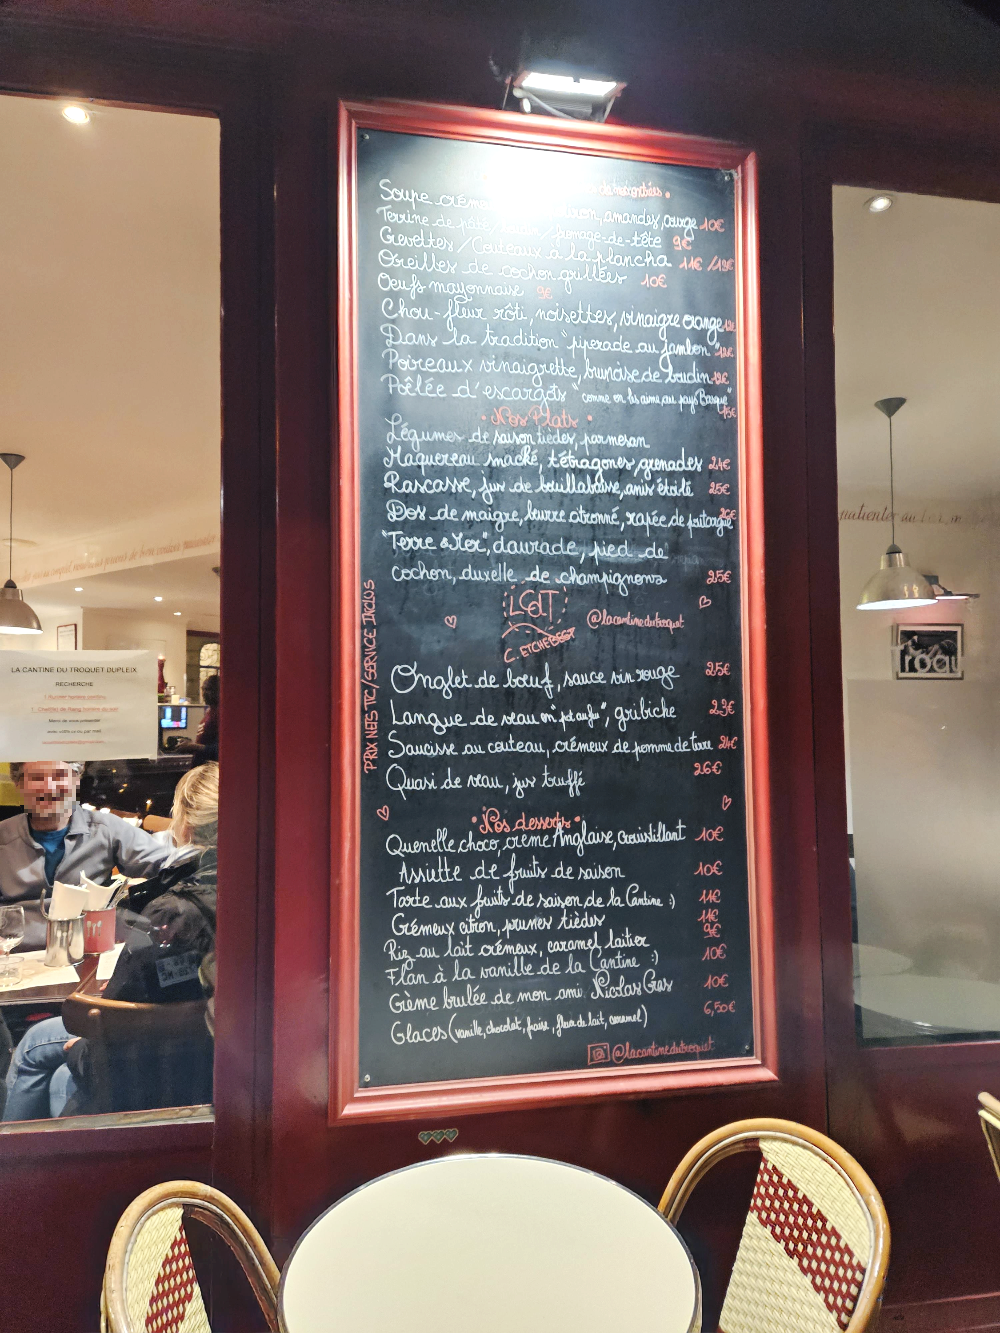 Soupe crème amandes, courge 10€
Terrine de fromage-de-tête 9€
Crevettes/Couteaux à la plancha 11€ /13€
Oreilles de cochon grillées 10€
Oeufs mayonnaise 9€
Chou-fleur rôti, noisettes, vinaigre orange 12€
Dans la tradition "piperade au jambon" 12€
Poireaux vinaigrette, brunoise de boudin 12€
Poêlée d'escargots "comme on les aime au pays Basque"
15€
• Nos Plats •
Légumes de saison tièdes, parmesan
Maquereau snacké, tétragones, grenades 24€
Rascasse, jus de bouillabaisse, anis étoilé 25€
Dos de maigre, beurre citronné, rapée de poutargue
"Terre & Mer", daurade, pied de
cochon, duxelle de champignons 25€
LCdT
@lacantinedutroquet
C. ETCHEBEST
PRIX NETS TTC/SERVICE INCLUS
Onglet de bœuf, sauce vin rouge 25€
Langue de veau en "pot au feu", gribiche 23€
Saucisse au couteau, crémeux de pomme de terre 24€
Quasi de veau, jus truffé 26€
• Nos desserts •
Quenelle choco, crème Anglaise, croustillant 10€
Assiette de fruits de saison 10€
Tarte aux fruits de saison de la Cantine :) 11€
Crémeux citron, prunes tièdes 11€
Riz au lait crémeux, caramel laitier 9€
Flan à la vanille de la Cantine :) 10€
Crème brulée de mon ami Nicolas Gras 10€
Glaces (vanille, chocolat, fraise, fleur de lait, caramel) 6,50€
@lacantinedutroquet
LA CANTINE DU TROQUET DUPLEIX
RECHERCHE
Merci de vous présenter
patienter au
Troqu